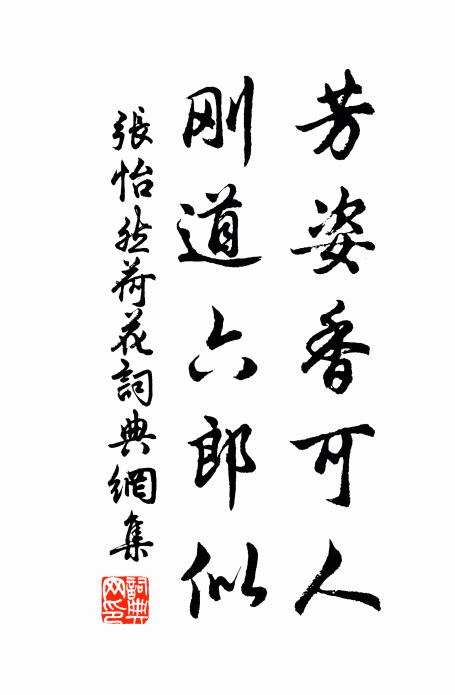 芳姿香可人
刚道六郎似
張怡然荷花詞典網集
詞典网印